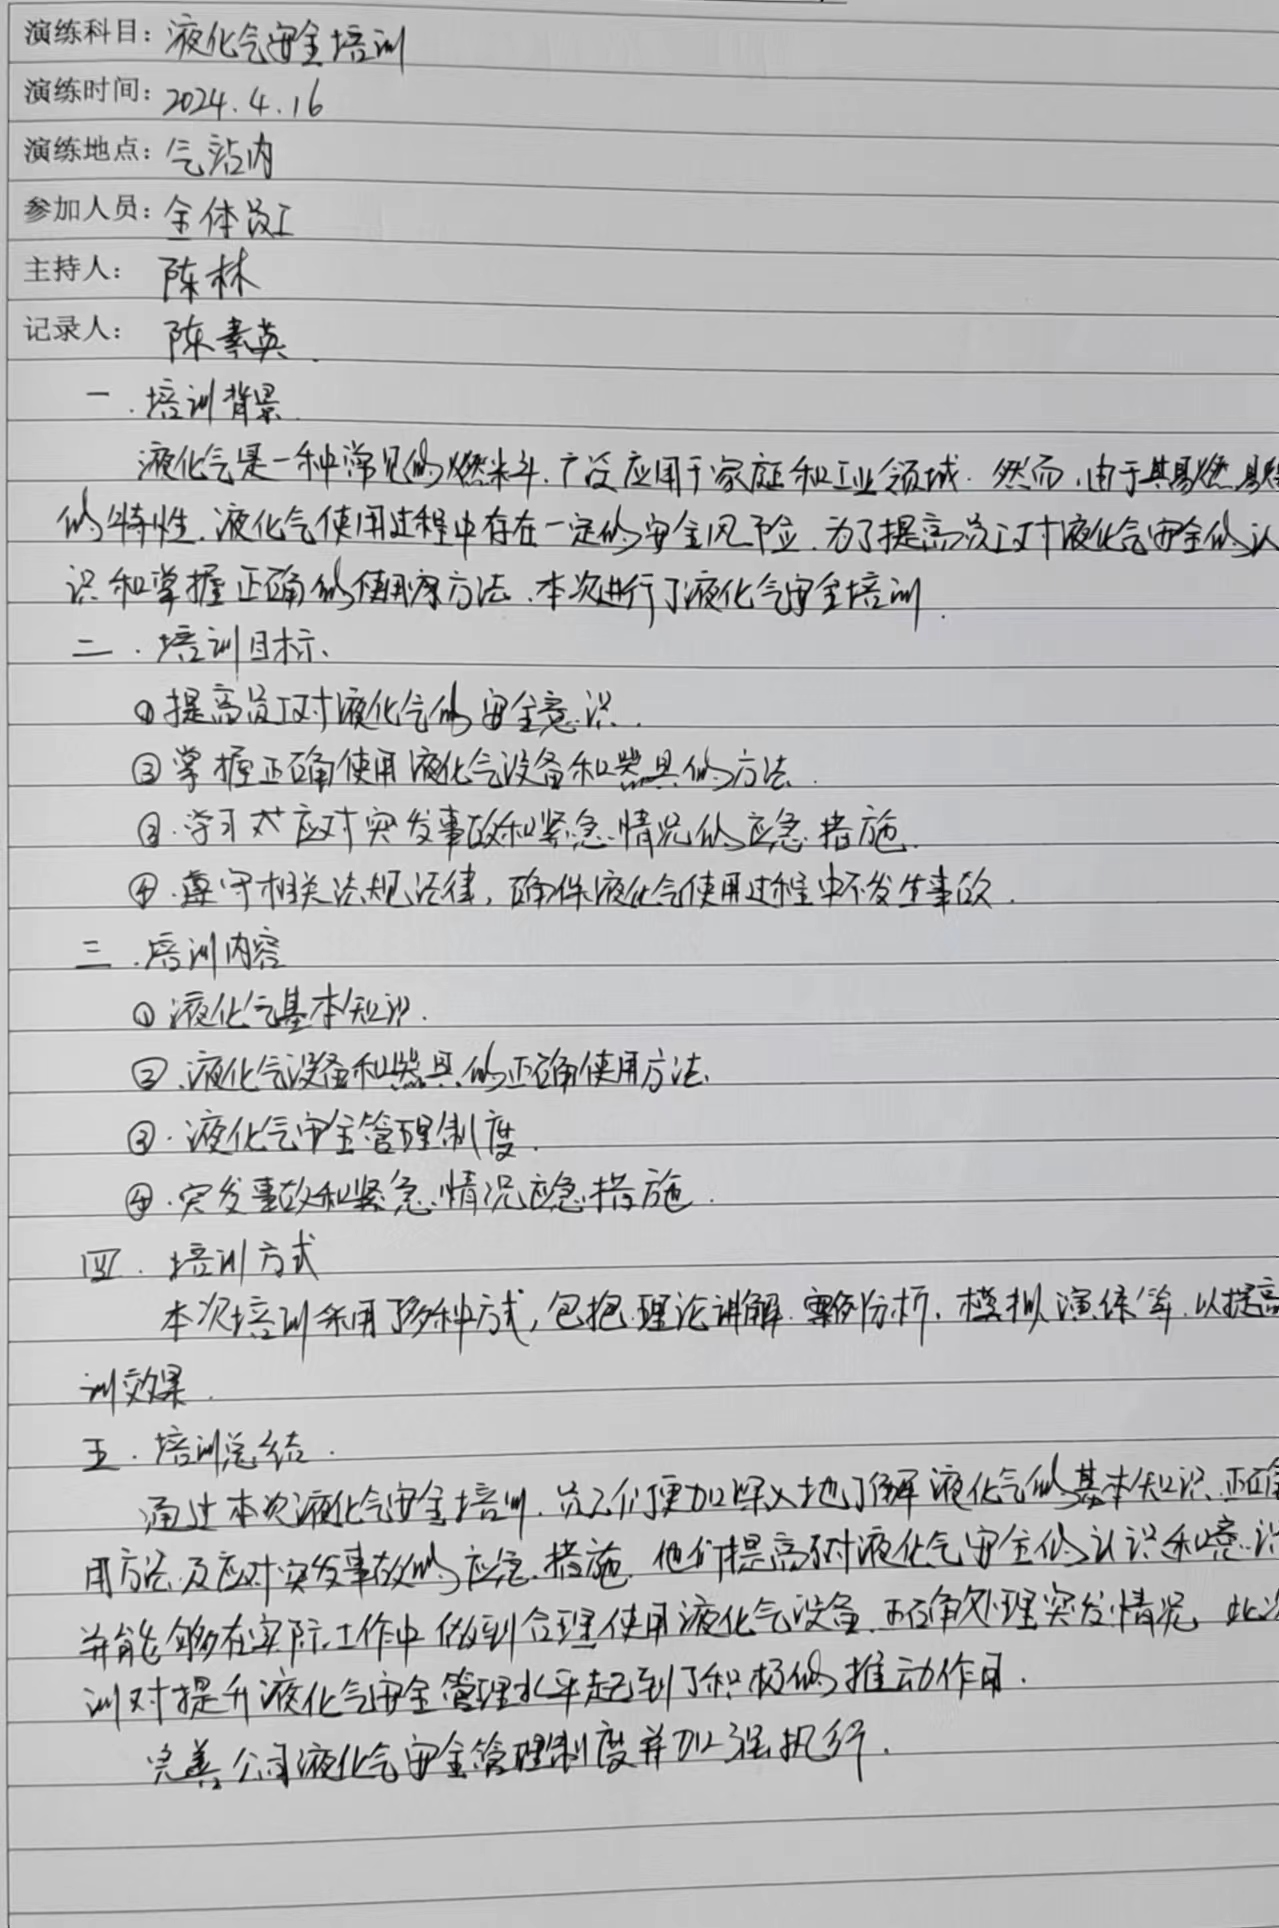 演练科目：液化气安全培训
演练时间：2024.4.16
演练地点：气站内
参加人员：全体员工
主持人：陈林
记录人：陈素英.
一.培训背景.
液化气是一种常见的燃料,广泛应用于家庭和工业领域.然而,由于其易燃易
的特性,液化气使用过程中存在一定的安全风险,为了提高员工对液化气安全的认
识和掌握正确的使用方法,本次进行了液化气安全培训.
二.培训目标、
①提高员工对液化气的安全意识.
②掌握正确使用液化气设备和器具的方法.
③.学习应对突发事故和紧急情况的应急措施.
④.遵守相关法规法律,确保液化气使用过程中不发生事故.
三.培训内容
①液化气基本知识.
②.液化气设备和器具的正确使用方法.
③.液化气安全管理制度.
④.突发事故和紧急情况应急措施.
四.培训方式
本次培训采用了多种方式,包括理论讲解.案例分析.模拟演练等.以提高
训效果.
五.培训总结.
通过本次液化气安全培训.员工们更加深入地了解液化气的基本知识、正确
用方法及应对突发事故的应急措施.他们提高了对液化气安全的认识和意识
并能够在实际工作中做到合理使用液化气设备.正确处理突发情况.此次
训对提升液化气安全管理水平起到了积极的推动作用.
完善公司液化气安全管理制度并加强执行.